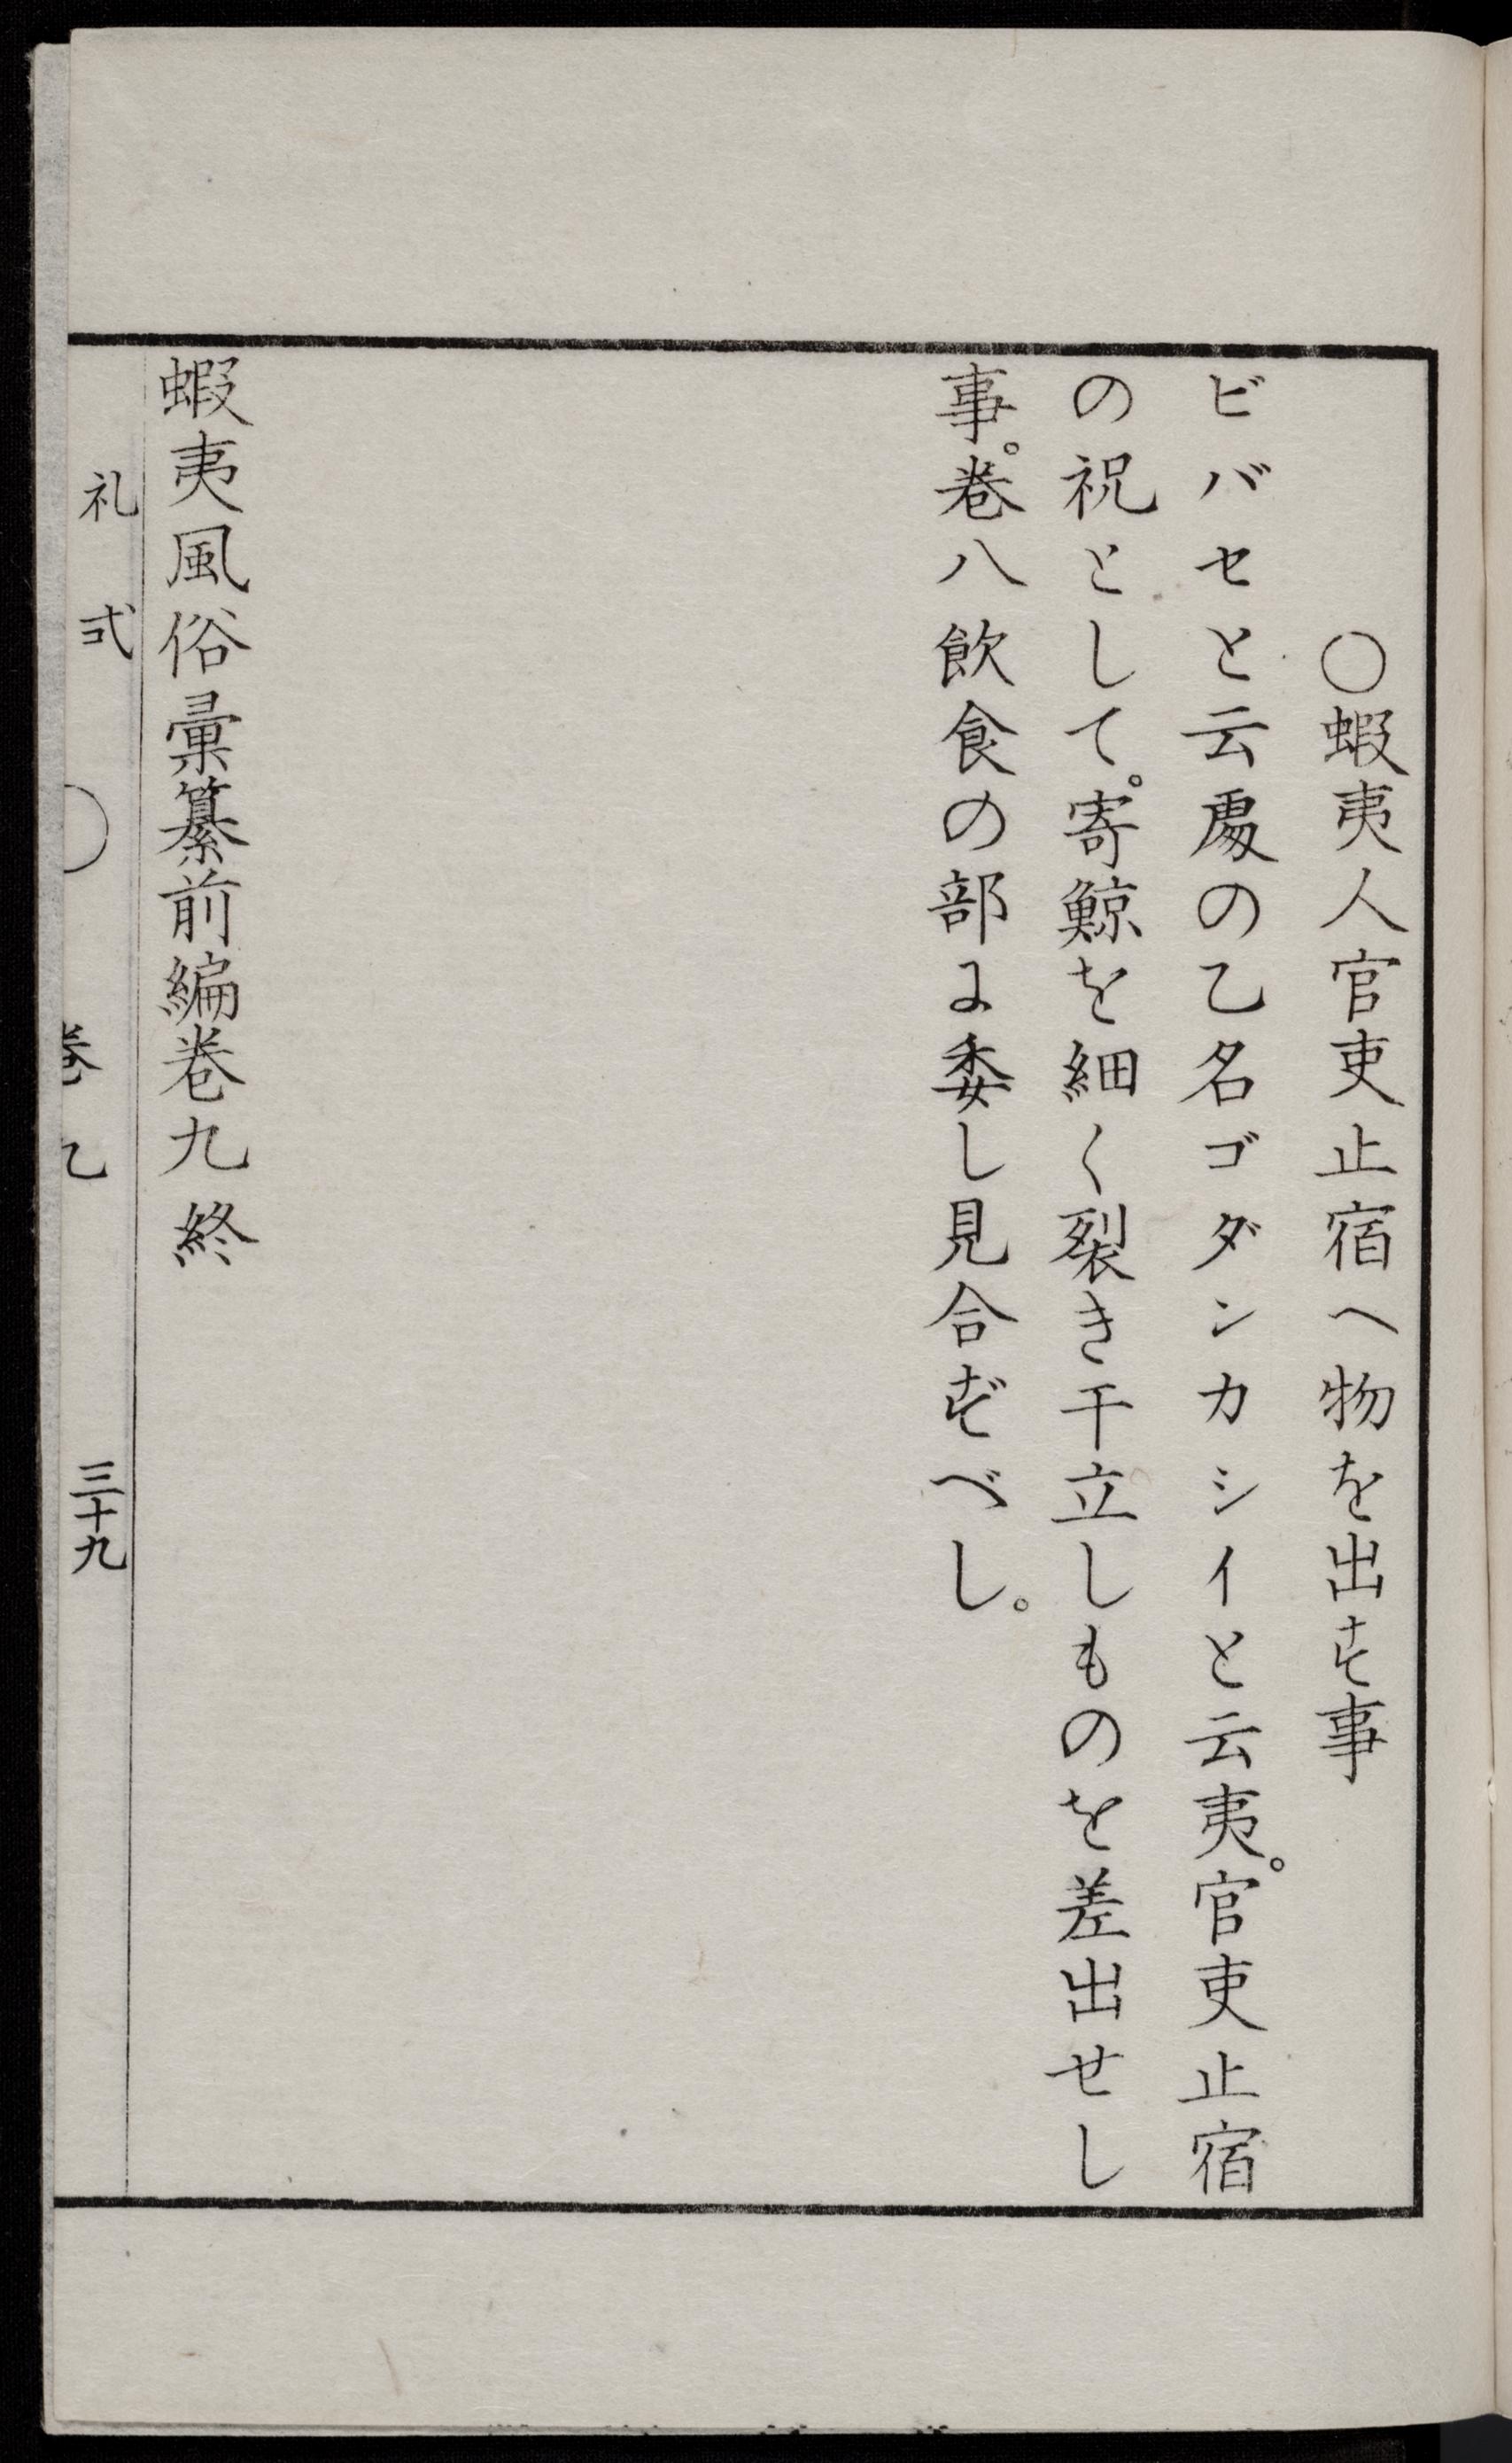 ○蝦夷人官吏止宿へ物を出す事
ビバセと云處の乙名ゴダンカシイと云夷。官吏止宿
の祝として。寄鯨を細く裂き干立しものを差出せし
事。巻八飲食の部に委し見合ずべし。
蝦夷風俗彙纂前編巻九終
礼式 ○ 巻九 三十九